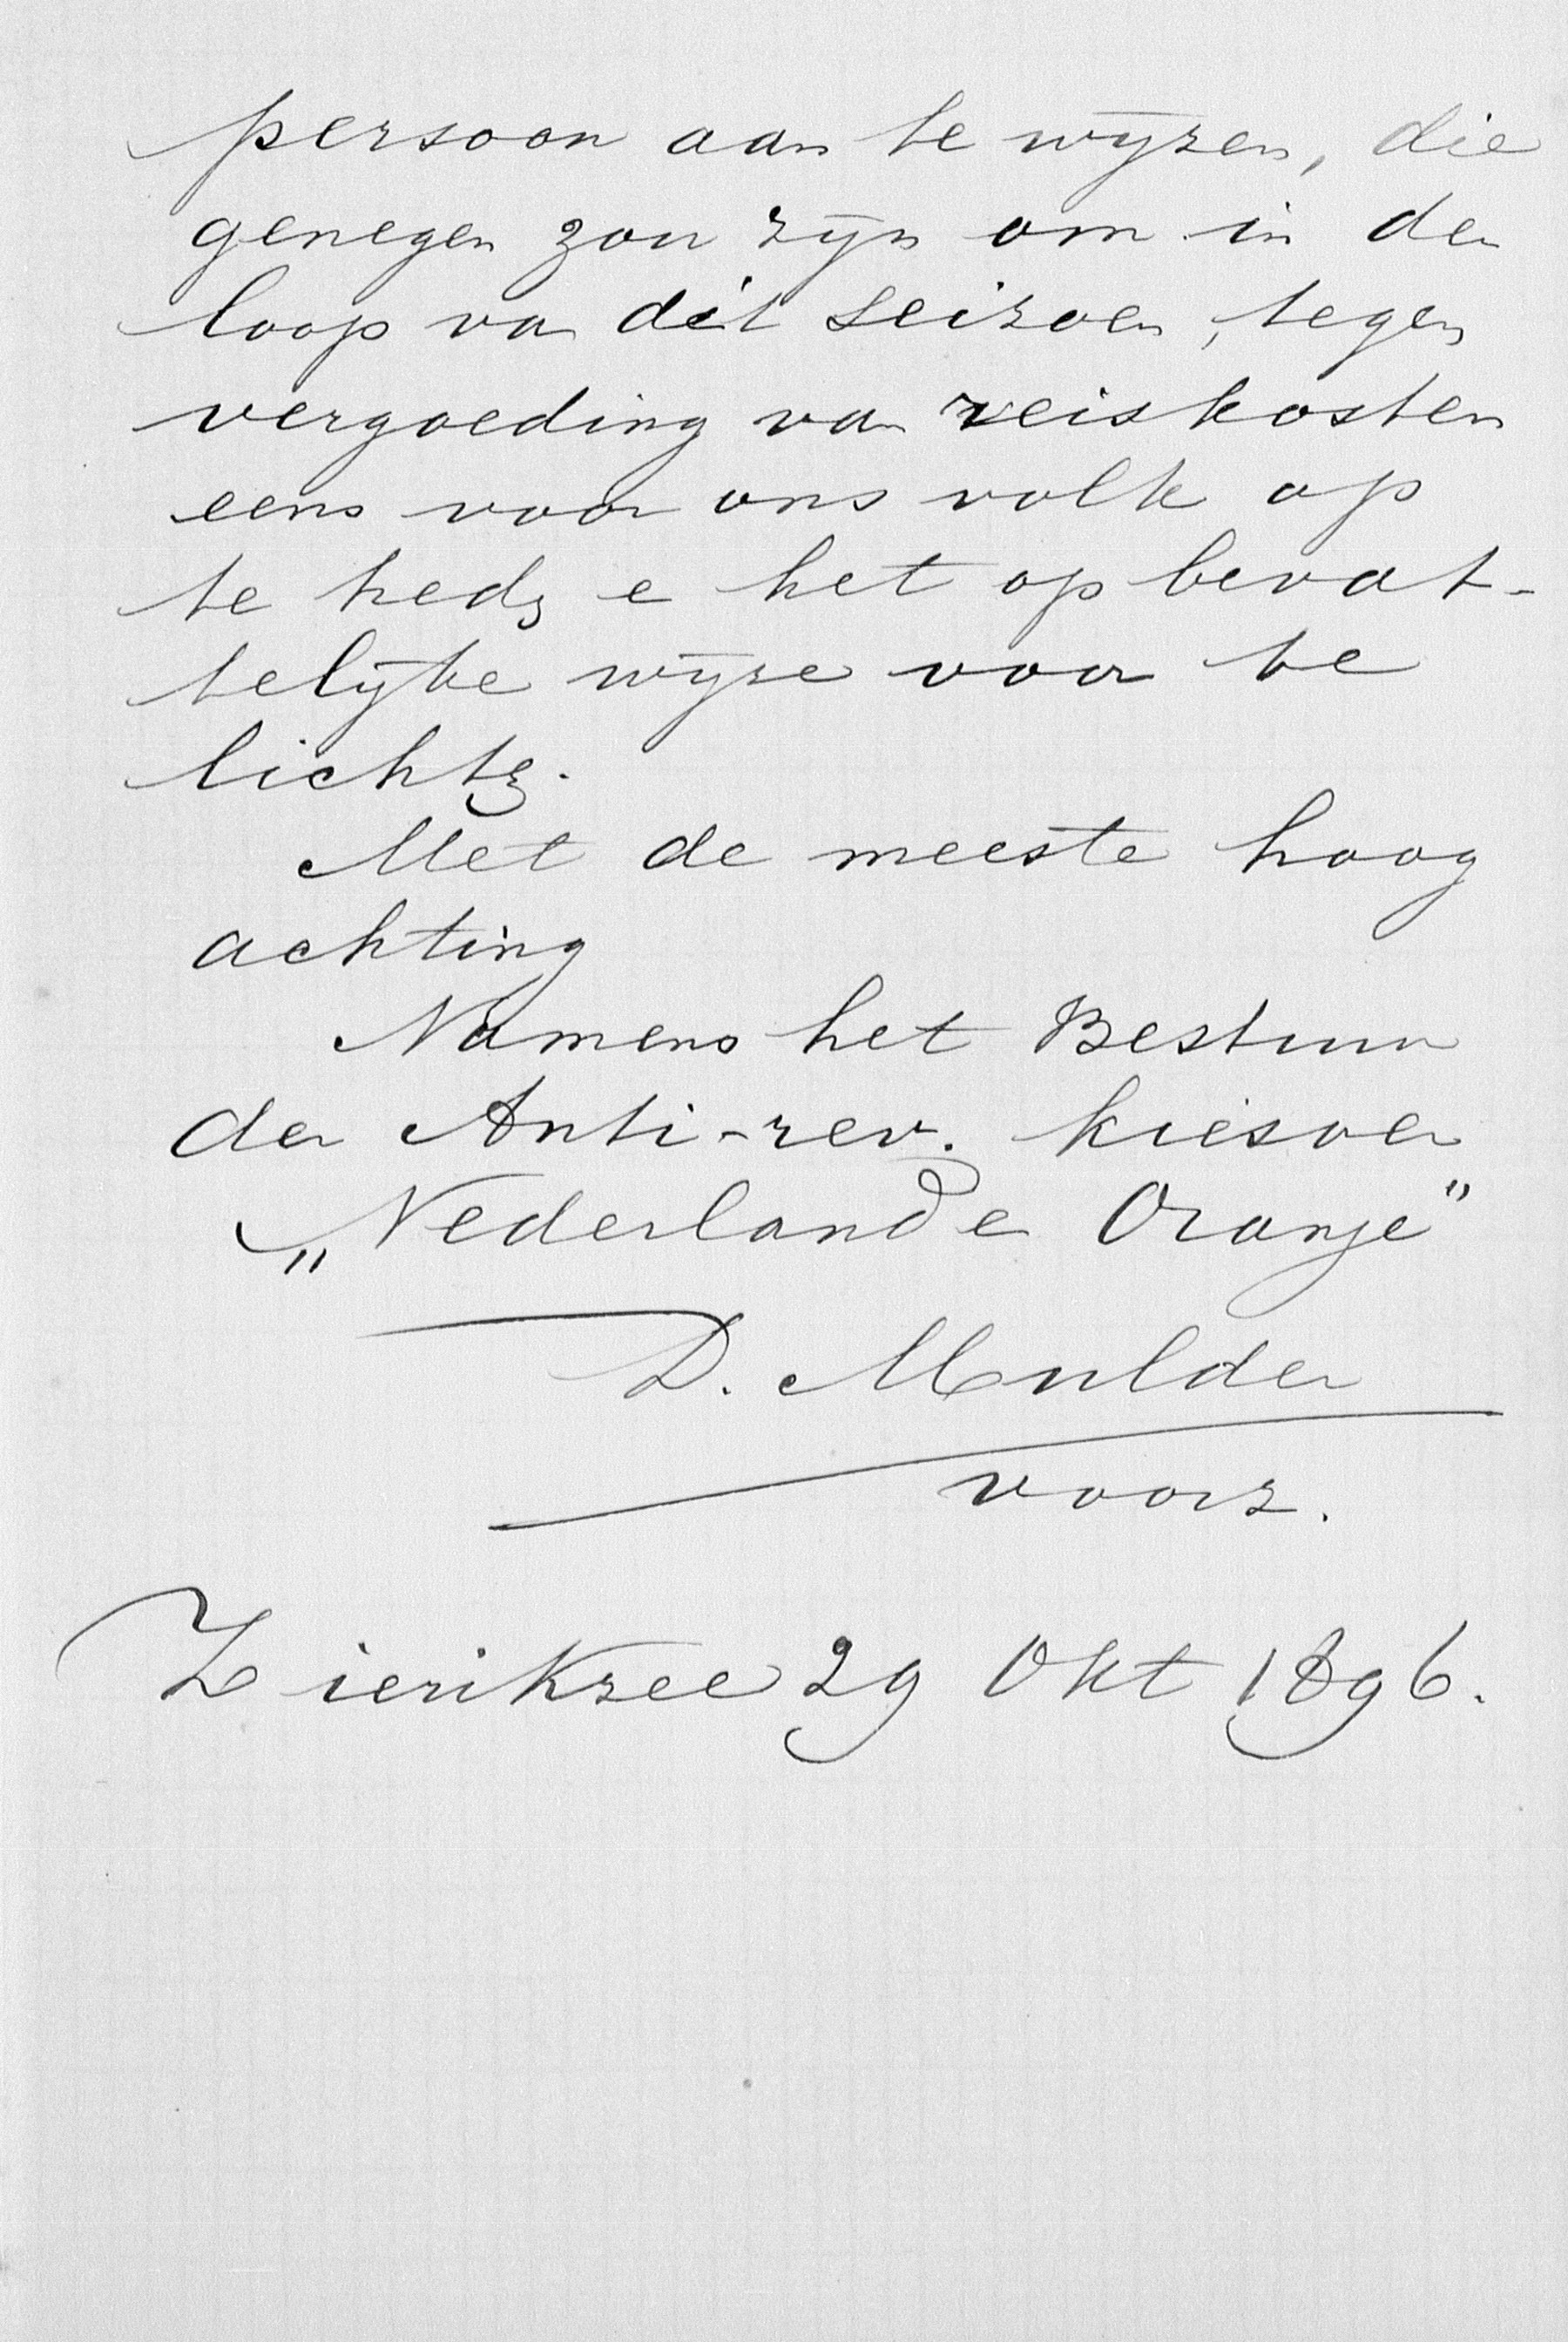 persoon aan te wijzen, die
genegen zou zijn om in den
loop van dit seizoen, tegen
vergoeding van reiskosten
eens voor ons volk op
te treden en het op bevat-
telijke wijze voor te
lichten.
Met de meeste hoog
achting
Namens het Bestuur
der Anti-rev. kiesver
„Nederland en Oranje"
D. Mulder
voorz.
Zierikzee 29 Okt 1896.